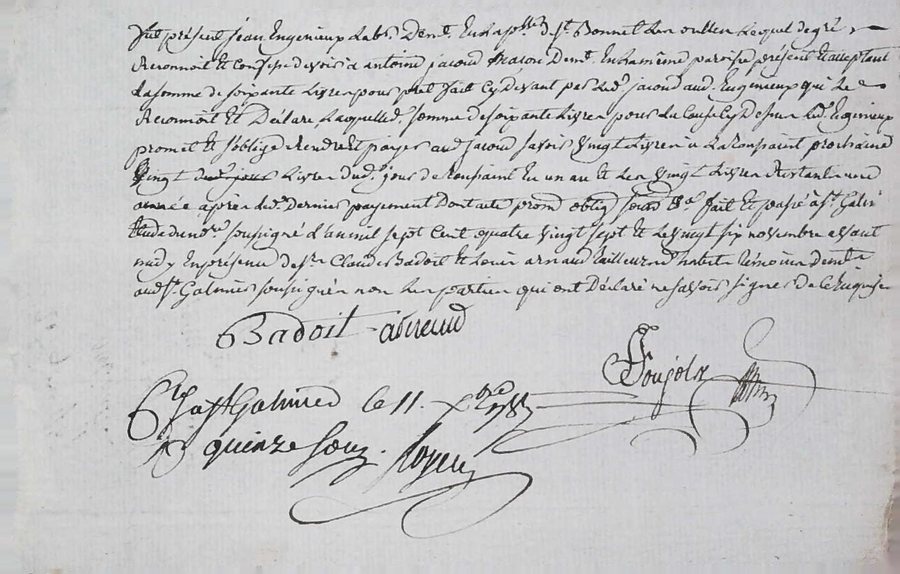 fut présent jean Engenieux Labr. demt. En la psse. de st. Bonnet Les oulles Lequel de gré
Reconnoit et Confesse devoir a antoine jacoud Maçon demt. En la même paroise présent et acceptant
La somme de soixante Livres pour prêt fait Cy devant par led. jacoud aud. Engenieux qui Le
Reconnoit et Déclare, Laquelled. somme de soixante Livres pour La Cause Cy dessus Led. Engenieux
promet et s'oblige Rendre et payer aud. jacoud savoir vingt Livres a La toussaint prochaine
vingt Livres dud. jour de toussaint En un an et Les vingt Livres Restante une
année apres Led. Dernier payement Dont acte promd. oblig. soumd. Rd. fait et passé a st. Galmier
Etude du nore. soussigné L'an mil sept Cent quatre vingt sept et Le vingt six novembre avant
midy En présence de sr. Claude Badoit et Louis arnaud tailleur d'habits témoins demt.
aud. st. Galmier soussignés non Les parties qui ont Déclaré ne savoir signer de ce Enquises
Badoit arnaud
Soujols
Clé a st. Galmier le 11. xbre 1787
quinze Sous.